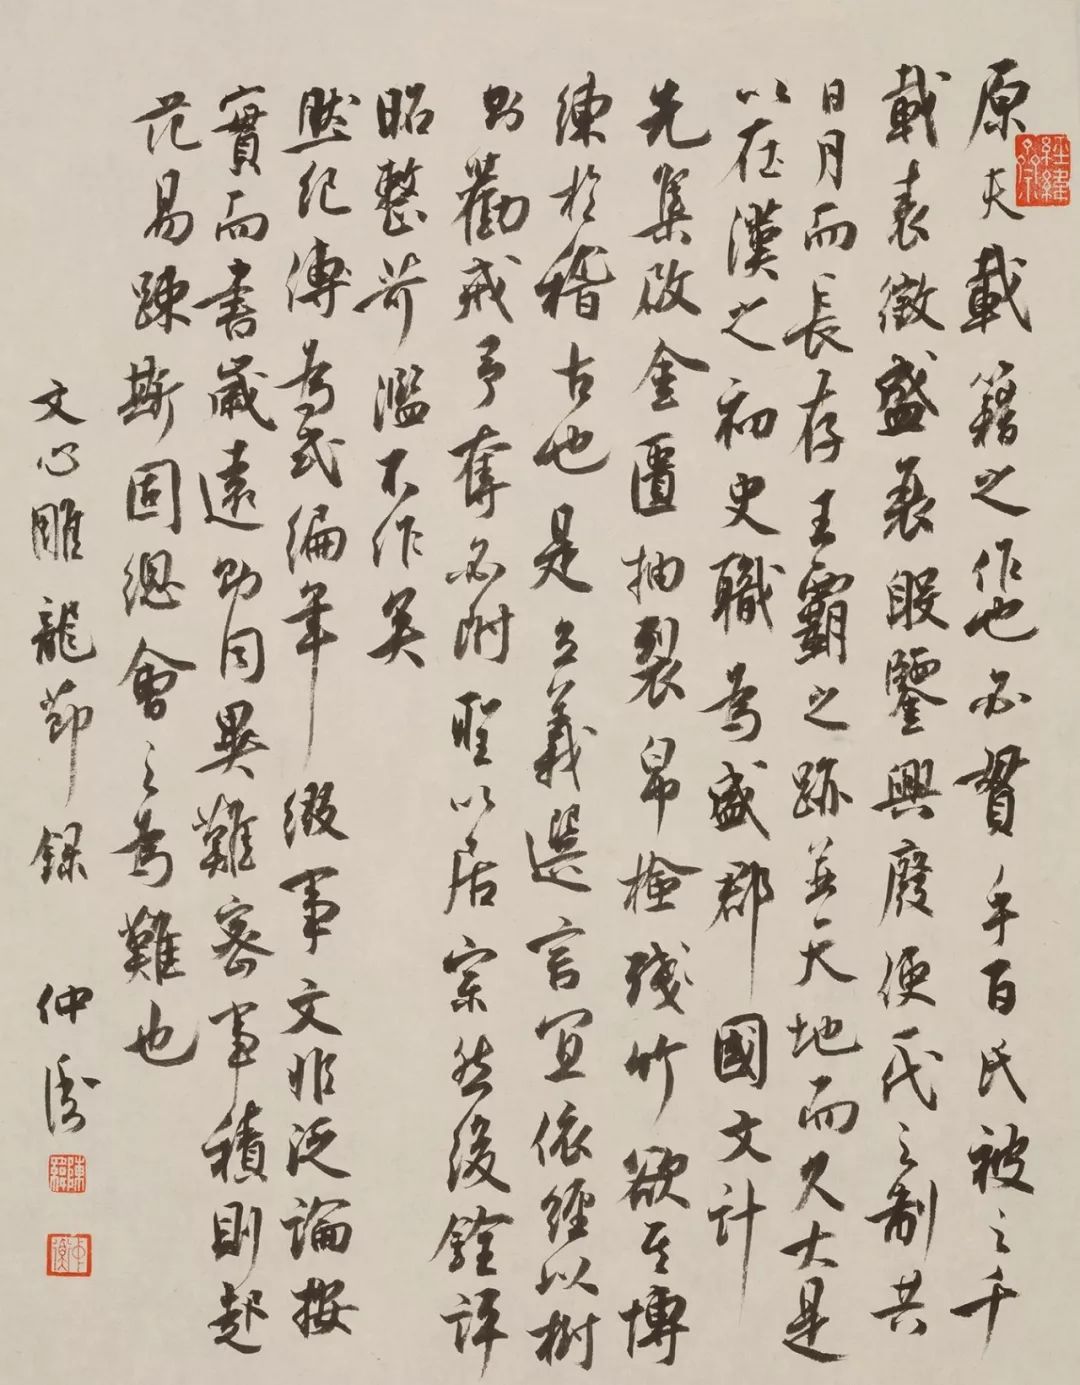 原夫載籍之作也必貫乎百氏被之千
載表徵盛衰殷鑒興廢使一代之制共
日月而長存王霸之跡並天地而久大是
以在漢之初史職為盛郡國文計
先集啟金匱抽裂帛檢殘竹欲其博
練於稽古也是立義選言宜依經以樹
則勸戒予奪必附聖以居宗然後銓評
昭整苛濫不作矣
然紀傳為式編年綴事文非泛論按
實而書歲遠則同異難密事積則起
訖易踈斯固總會之為難也
文心雕龍節錄 仲
經緯